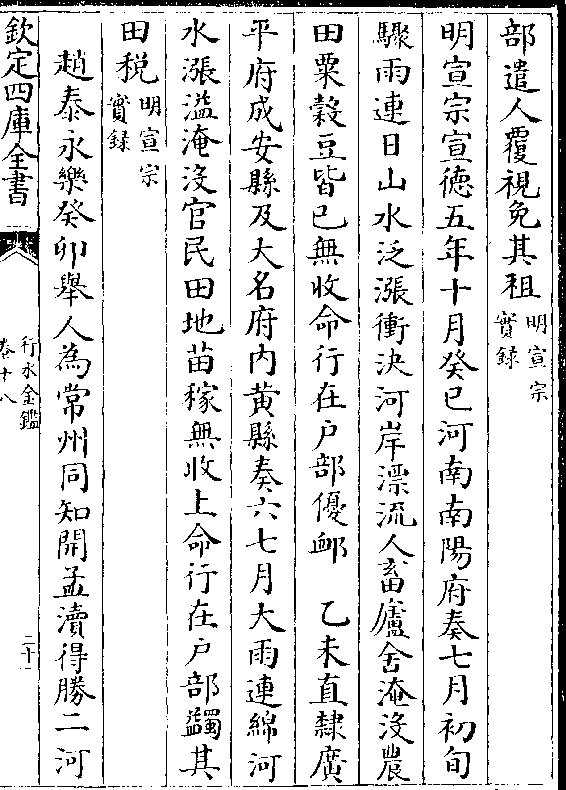 部遣人覆視免其租明宣宗實録
明宣宗宣德五年十月癸巳河南南陽府奏七月初旬
驟雨連日山水泛漲衝決河岸漂流人畜廬舍淹没農
田粟糓豆皆已無收命行在户部優卹　乙未直隸廣
平府成安縣及大名府内黄縣奏六七月大雨連綿河
水漲溢淹没官民田地苗稼無收上命行在户部蠲其
田税明宣宗實録
趙泰永樂癸卯舉人為常州同知開孟瀆得勝二河
欽定四庫全書
行水金鑑
卷十八
二十一